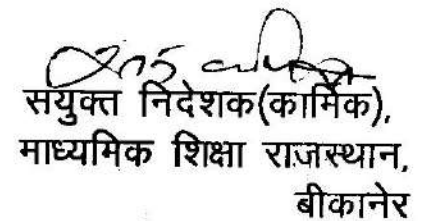 सयुक्त निदेशक(कार्मिक),
माध्यमिक शिक्षा राजस्थान,
बीकानेर